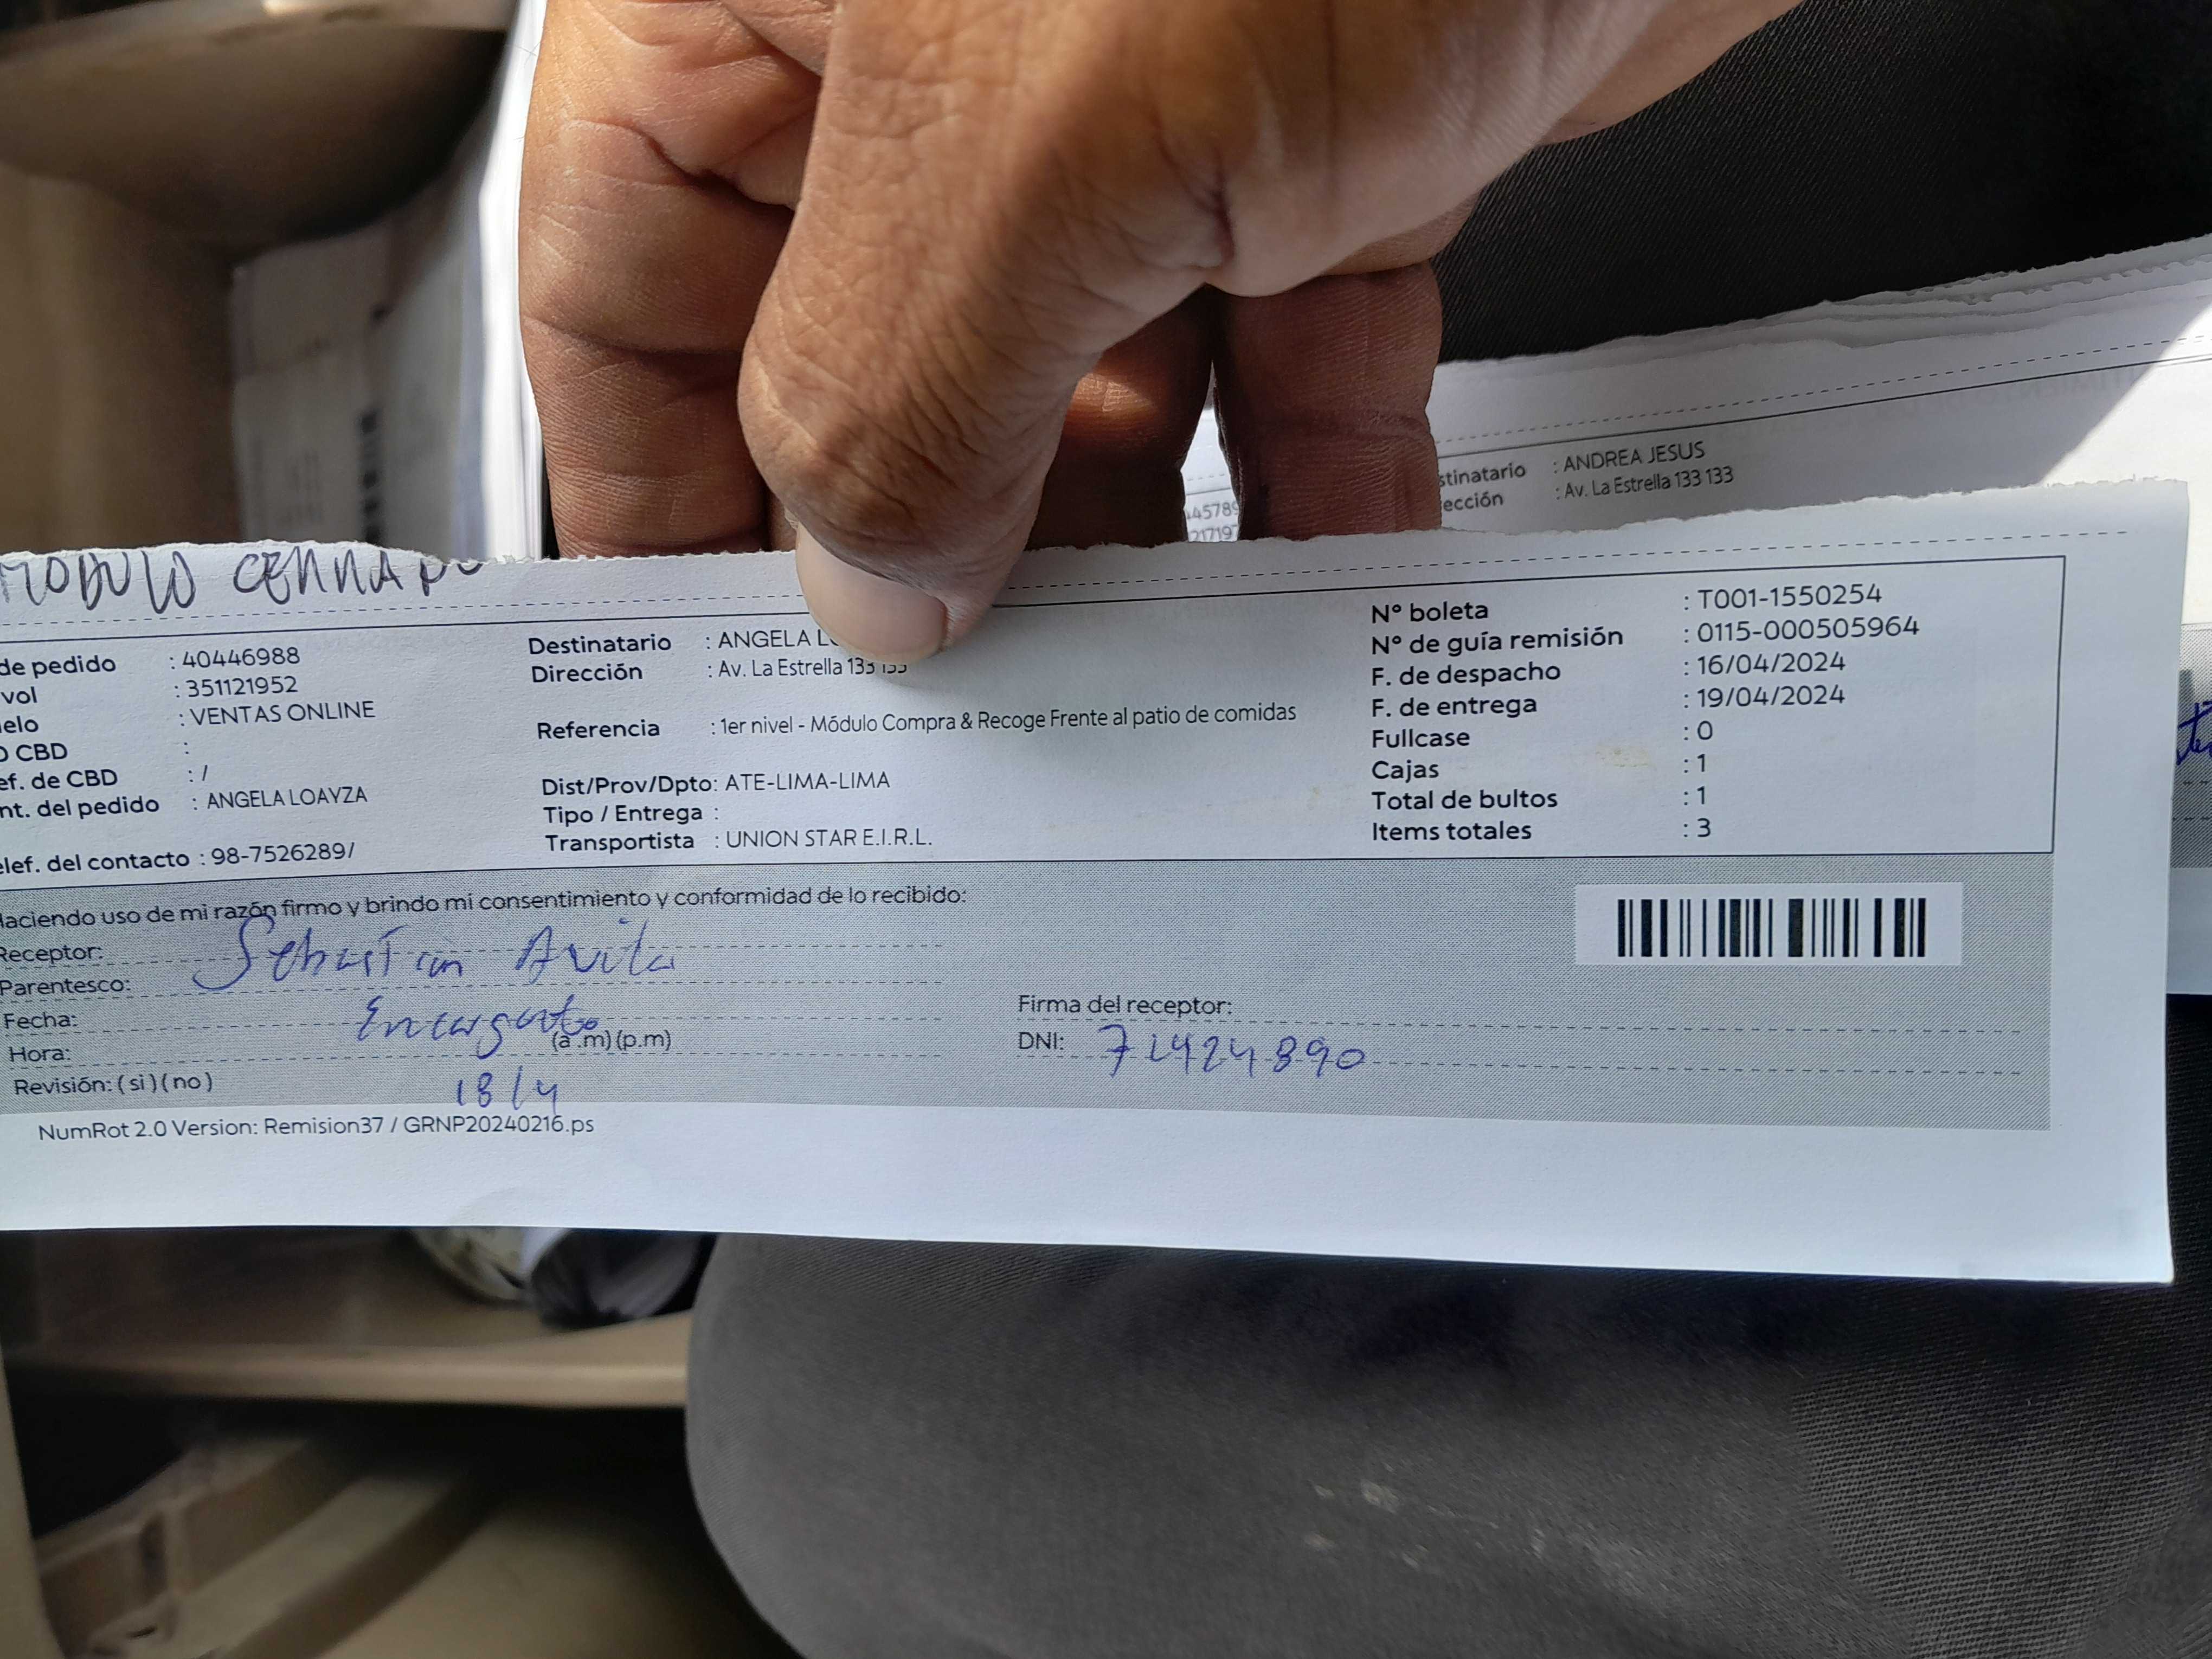 stinatario : ANDREA JESUS
ección : Av. La Estrella 133 133
MODULO CERRADO
de pedido : 40446988
vol : 351121952
elo : VENTAS ONLINE
O CBD :
ef. de CBD : /
nt. del pedido : ANGELA LOAYZA
elef. del contacto : 98-7526289/
Destinatario : ANGELA LO
Dirección : Av. La Estrella 133 133
Referencia : 1er nivel - Módulo Compra & Recoge Frente al patio de comidas
Dist/Prov/Dpto: ATE-LIMA-LIMA
Tipo / Entrega :
Transportista : UNION STAR E.I.R.L.
N° boleta : T001-1550254
N° de guía remisión : 0115-000505964
F. de despacho : 16/04/2024
F. de entrega : 19/04/2024
Fullcase : 0
Cajas : 1
Total de bultos : 1
Items totales : 3
Haciendo uso de mi razón firmo y brindo mi consentimiento y conformidad de lo recibido:
Receptor: Sebastian Avila
Parentesco:
Fecha: Encargato
Hora: (a .m) (p.m)
Revisión: ( si ) ( no ) 18/4
Firma del receptor:
DNI: 71424890
NumRot 2.0 Version: Remision37 / GRNP20240216.ps